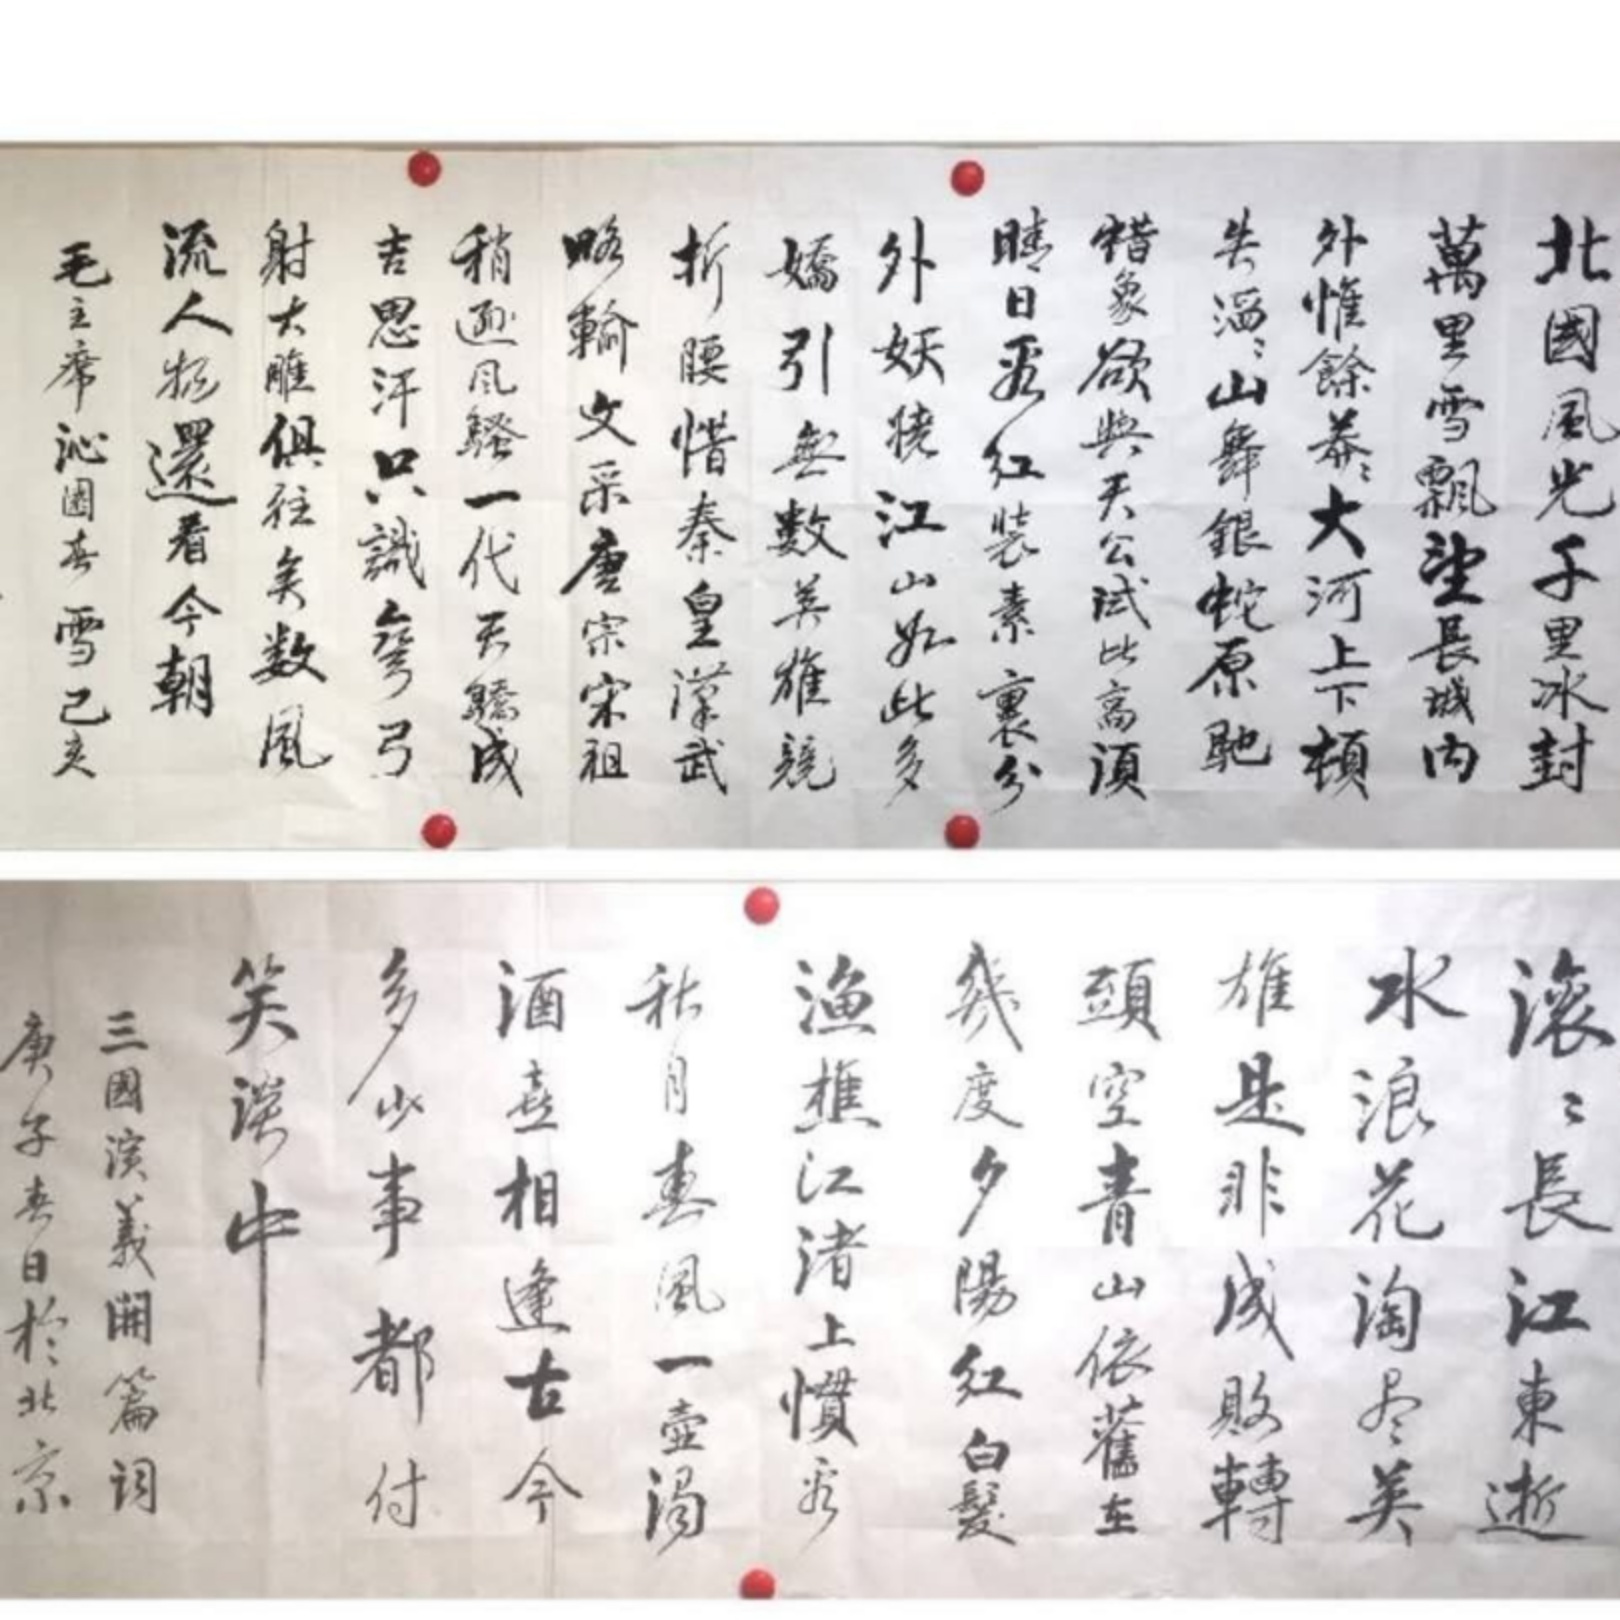 北國風光千里冰封
萬里雪飄望長城内
外惟餘莽〻大河上下頓
失滔〻山舞銀蛇原馳
蜡象欲與天公試比高須
晴日看红裝素裹分
外妖娆江山如此多
嬌引無數英雄競
折腰惜秦皇漢武
略輸文采唐宗宋祖
稍遜風騷一代天驕成
吉思汗只識彎弓
射大雕俱往矣数風
流人物還看今朝
毛主席沁園春雪己亥
滚〻長江東逝
水浪花淘尽英
雄是非成敗轉
頭空青山依舊在
幾度夕陽红白髮
漁樵江渚上慣看
秋月春風一壺濁
酒喜相逢古今
多少事都付
笑談中
三國演義開篇词
庚子春日於北京